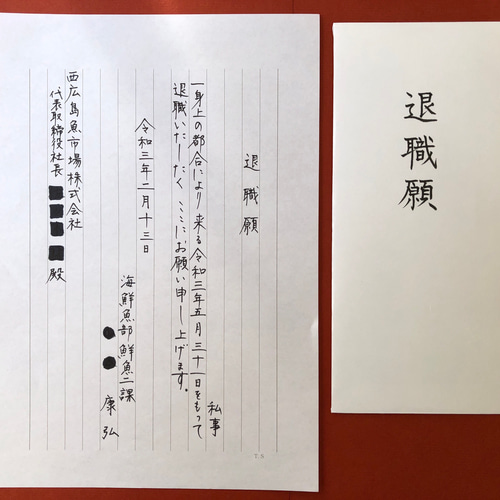 退職願
退職願
私事
一身上の都合により来る令和三年五月三十一日をもって
退職いたしたくここにお願い申し上げます。
令和三年一月十三日
海鮮魚部鮮魚二課
康弘
西広島魚市場株式会社
代表取締役社長 殿